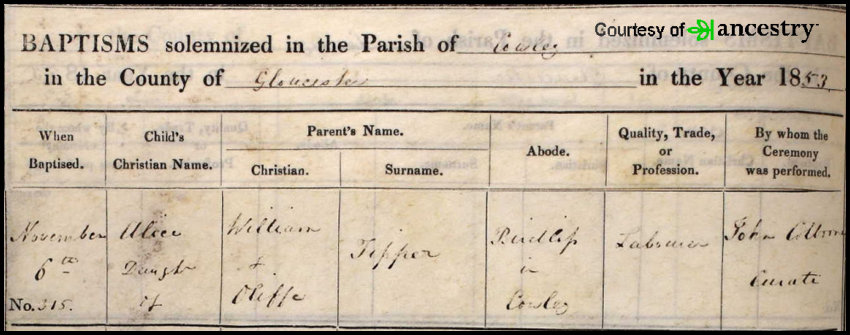 Courtesy of ancestry
BAPTISMS solemnized in the Parish of Cowley
in the County of Gloucester in the Year 1853
When
Baptised.
Child's
Christian Name.
Parent's Name.
Christian.
Surname.
Abode.
Quality, Trade,
or
Profession.
By whom the
Ceremony
was performed.
November
6th
No. 315.
Alice
Daught
of
William
&
Oliffe
Tipper
Birdlip
in
Cowley
Labourer
John
Curate